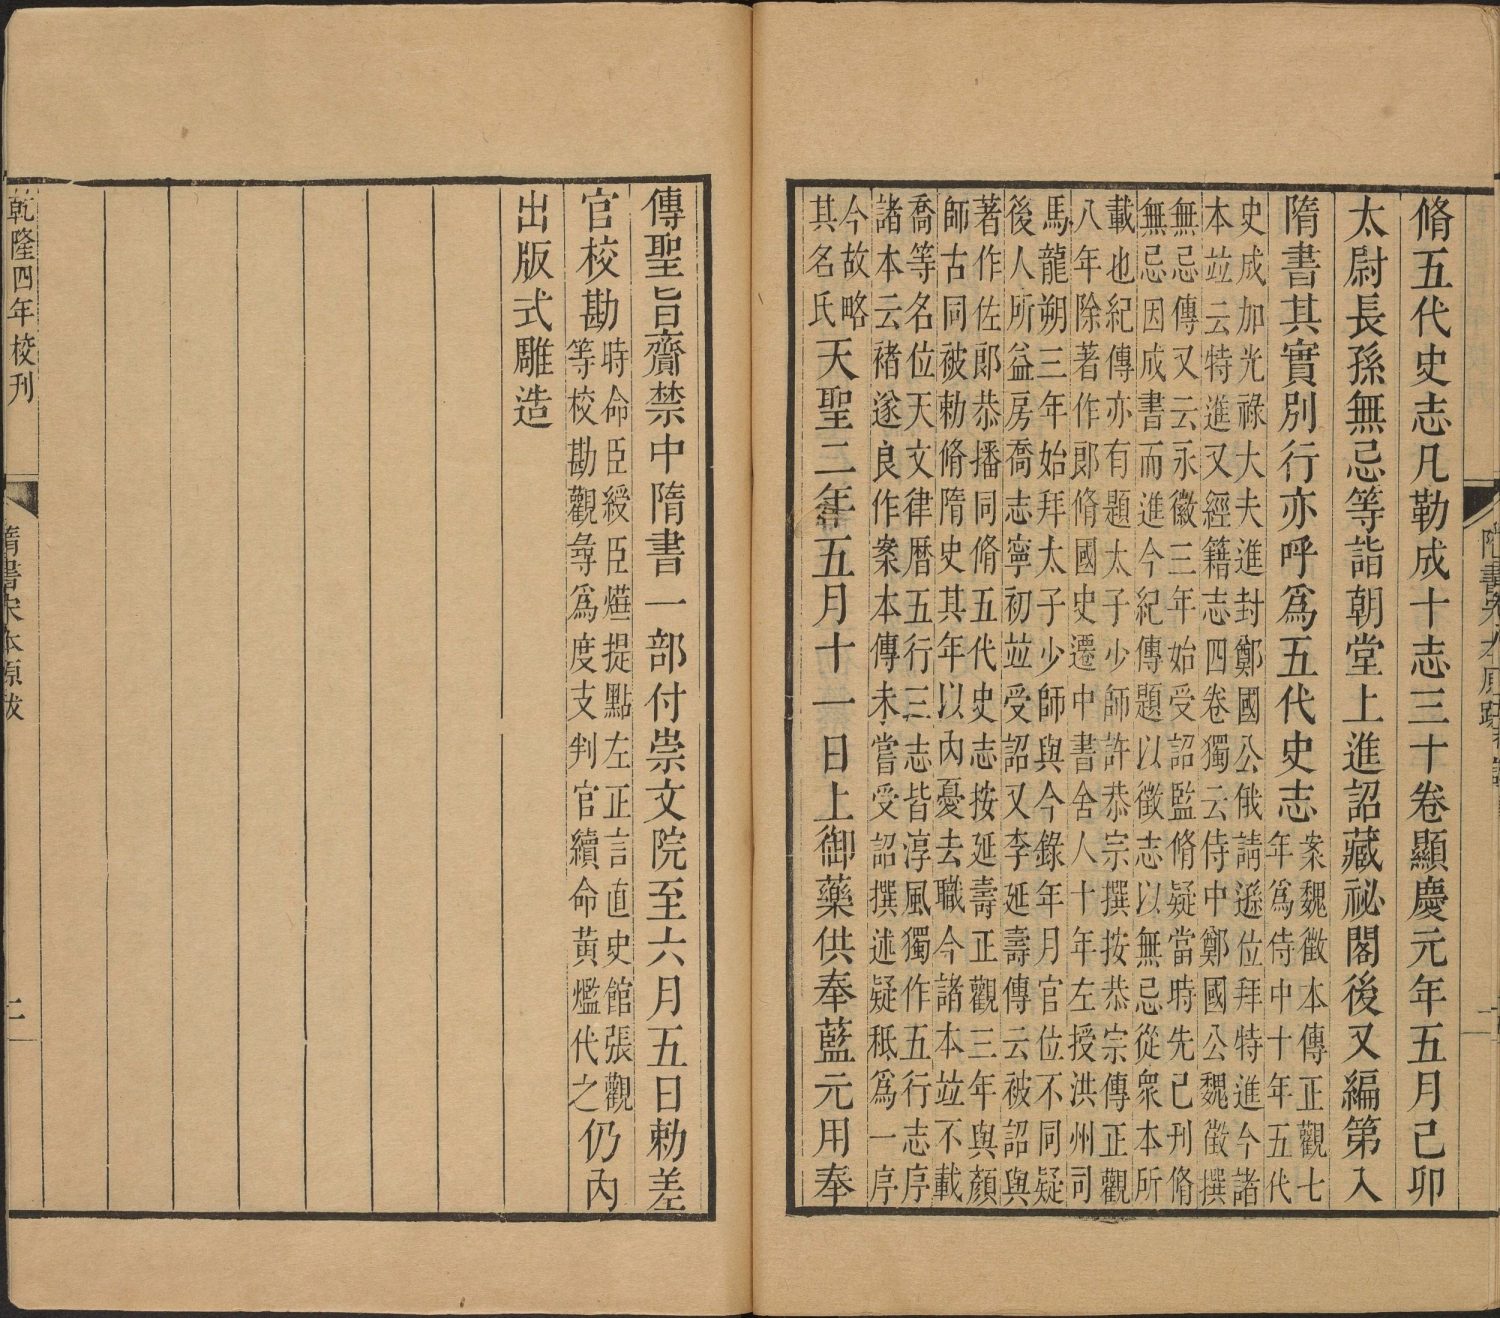 脩五代史志凡勒成十志三十卷顯慶元年五月己卯
太尉長孫無忌等詣朝堂上進詔藏祕閣後又編第入
隋書其實別行亦呼爲五代史志案魏徵本傳正觀七
年爲侍中十年五代
史成加光祿大夫進封鄭國公俄請遜位拜特進今諸
本竝云特進又經籍志四卷獨云侍中鄭國公魏徵撰
無忌傳又云永徽三年始受詔監脩疑當時先已刊脩
無忌因成書而進今紀傳題以徵志以無忌從衆本所
載也紀傳亦有題太子少師許恭宗撰按恭宗傳正觀
八年除著作郎脩國史遷中書舍人十年左授洪州司
馬龍朔三年始拜太子少師與今錄年月官位不同疑
後人所益房喬志寧初竝受詔又李延壽傳云被詔與
著作佐郎恭播同脩五代史志按延壽正觀三年與顏
師古同被勅脩隋史其年以內憂去職今諸本竝不載
喬等名位天文律曆五行三志皆淳風獨作五行志序
諸本云褚遂良作案本傳未嘗受詔撰述疑秪爲一序
今故略
其名氏天聖二年五月十一日上御藥供奉藍元用奉
傳聖旨齎禁中隋書一部付崇文院至六月五日勅差
官校勘時命臣綬臣燁提點左正言直史館張觀
等校勘觀尋爲度支判官續命黃鑑代之仍內
出版式雕造
乾隆四年校刊
隋書宋本原跋
二